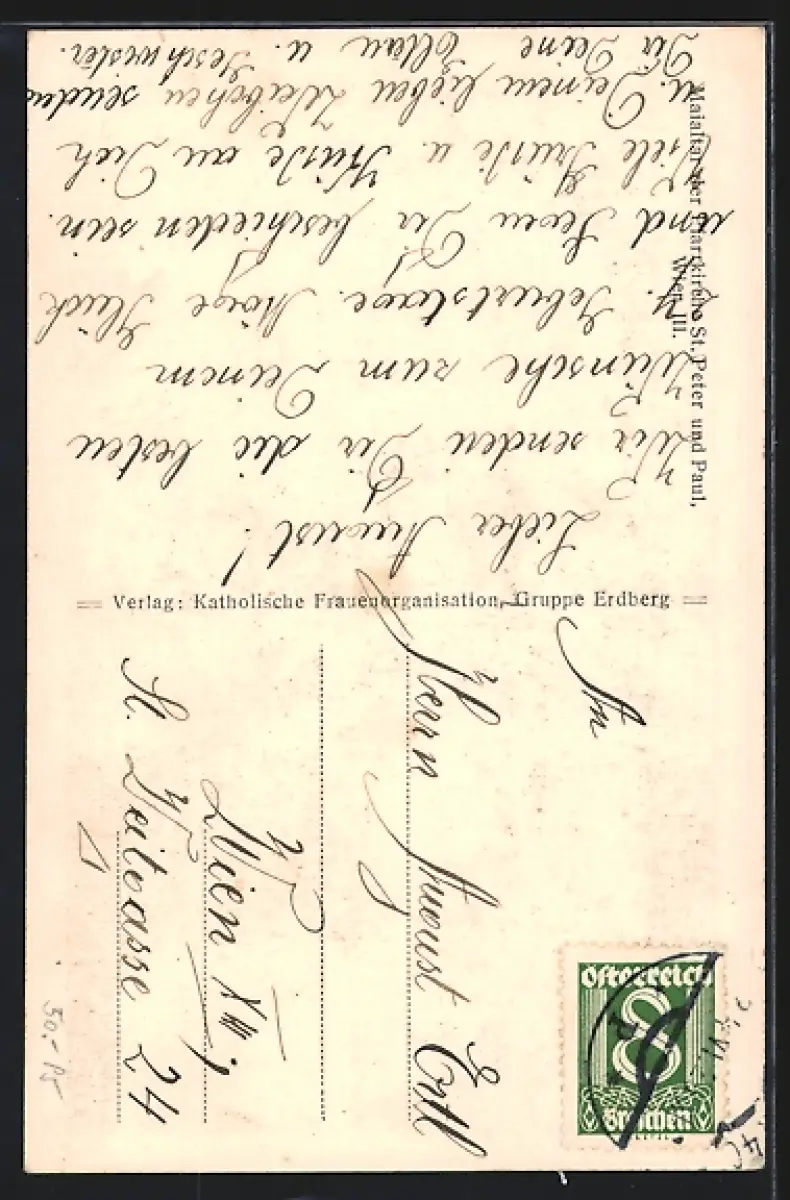 Maialtar der Pfarrkirche St. Peter und Paul,
Wien III.
Lieber August!
Wir senden Dir die besten
Wünsche zum Deinem
Geburtstage. Möge Glück
und Segen Dir beschieden sein.
Viele Grüße u. Küsse an Dich
u. Deinem lieben Weibchen senden
Dir Deine Eltern u. Geschwister.
Verlag: Katholische Frauenorganisation, Gruppe Erdberg
An
Herrn August Ertl
Wien XIII;
St. Veitgasse 24
Österreich
8
Groschen
50.-